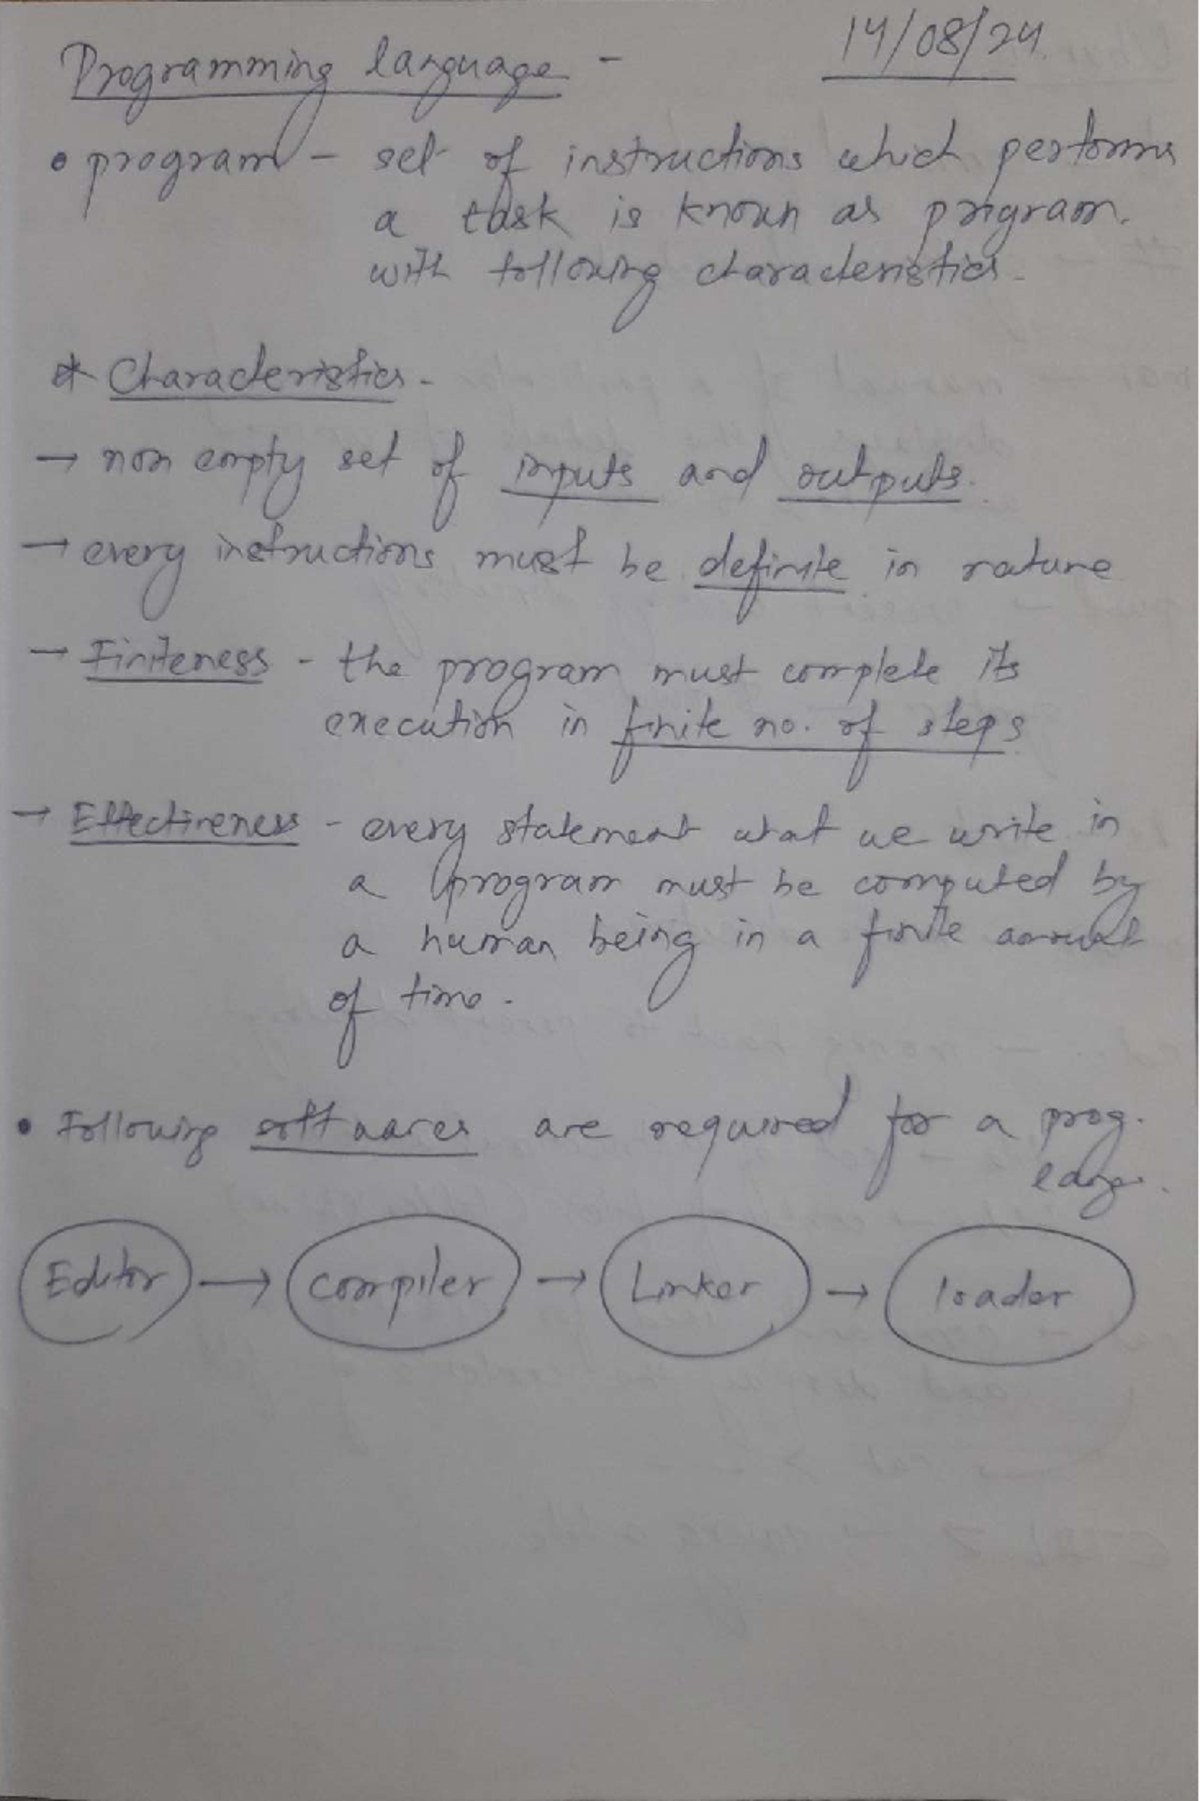 Programming language - 14/08/24
• program - set of instructions which performs
a task is known as program.
with following characteristics.
* Characteristics.-
→ non empty set of inputs and outputs.
→ every instructions must be definite in nature
→ Finiteness - the program must complete its
execution in finite no. of steps
→ Effectiveness - every statement what we write in
a program must be computed by
a human being in a finite amount
of time.
• Following softwares are required for a prog.
lang.
Editor → compiler → Linker → loader